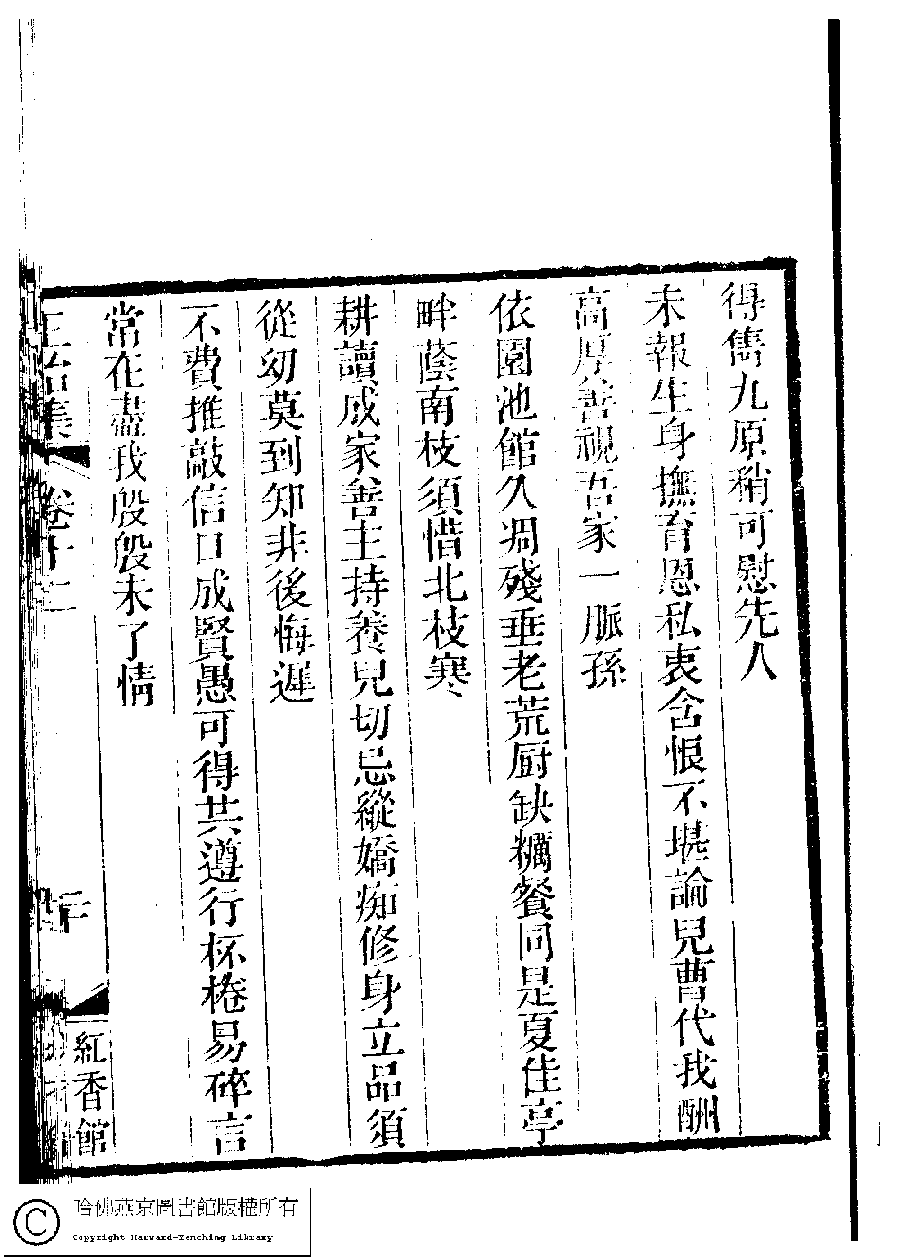 得雋九原稍可慰先人
未報生身撫育恩私衷含恨不堪論兒曹代我酬
高厚善視吾家一脈孫
依園池館久凋殘垂老荒厨缺糲餐同是夏佳亭
畔蔭南枝須惜北枝寒
耕讀成家善主持養兒切忌縱嬌痴修身立品須
從幼莫到知非後悔遲
不費推敲信口成賢愚可得共遵行杯棬易碎言
常在盡我殷殷未了情
卷十二
紅香館
哈佛燕京圖書館版權所有
Copyright Harvard-Yenching Library